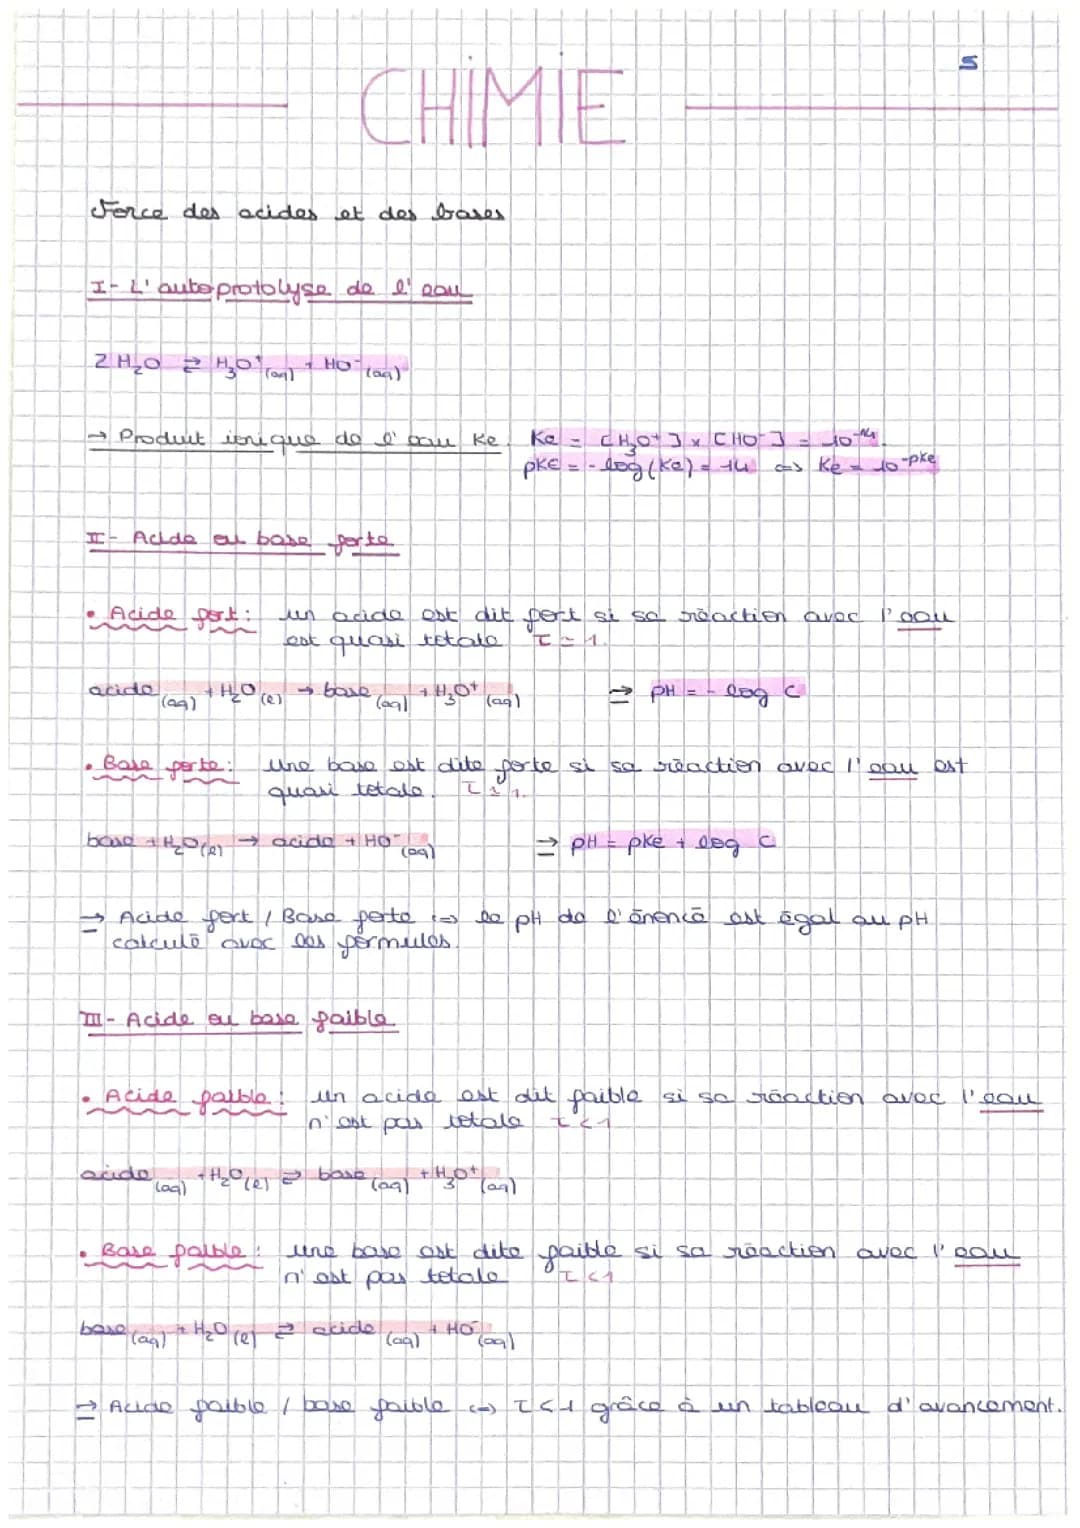 5
CHIMIE
Force des acides et des bases
I- L'autoprotolyse de l'eau
2 H₂O ⇄ H₃O⁺(aq) + HO⁻(aq)
→ Produit ionique de l'eau Ke. Ke = [H₃O⁺] x [HO⁻] = 10⁻¹⁴.
pKE = - log (Ke) = 14 <=> Ke = 10^-pKe
II- Acide ou base forte
• Acide fort : un acide est dit fort si sa réaction avec l'eau
est quasi totale τ = 1.
acide(aq) + H₂O(l) → base(aq) + H₃O⁺(aq) ⇒ pH = - log C
• Base forte : une base est dite forte si sa réaction avec l'eau est
quasi totale. τ = 1.
base + H₂O(l) → acide + HO⁻(aq) ⇒ pH = pKe + log C
⇒ Acide fort / Base forte <=> le pH de l'énoncé est égal au pH
calculé avec les formules.
III- Acide ou base faible
• Acide faible : un acide est dit faible si sa réaction avec l'eau
n'est pas totale τ < 1
acide(aq) + H₂O(l) ⇄ base(aq) + H₃O⁺(aq)
• Base faible : une base est dite faible si sa réaction avec l'eau
n'est pas totale τ < 1
base(aq) + H₂O(l) ⇄ acide(aq) + HO⁻(aq)
⇒ Acide faible / base faible <=> τ < 1 grâce à un tableau d'avancement.